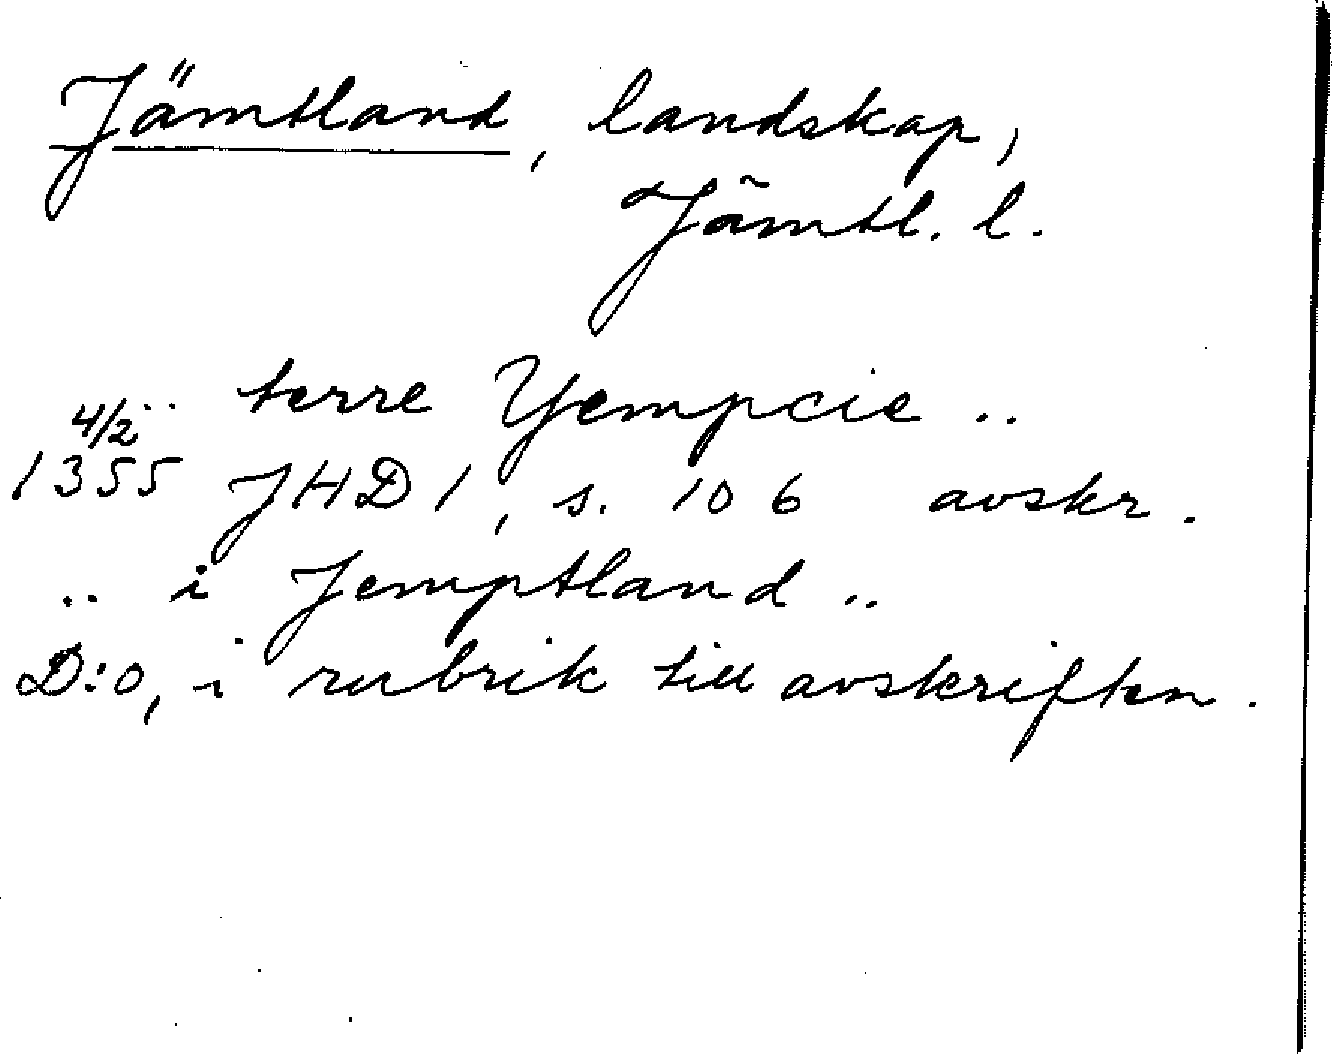 Jämtland, landskap,
Jämtl. l.
.. terre Yempcie ..
4/2
1355 JHD 1, s. 106 avskr.
.. i Jemptland ..
D:o, i rubrik till avskriften.